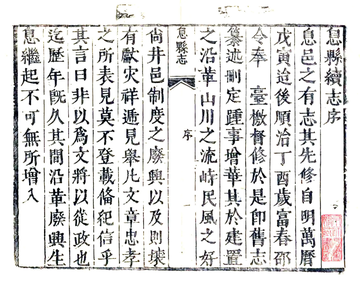 息縣續志序
息邑之有志其先修自明萬曆
戊寅迨後順治丁酉歲富春邵
令奉 臺檄督修於是即舊志
纂述刪定踵事增華其於建置
之沿革山川之流峙民風之好
息縣志 序 一
尚井邑制度之廢興以及則壤
有獻灾祥遞見舉凡文章忠孝
之所表見莫不登載備紀信乎
其言曰非以為文將以從政也
迄歷年旣久其間沿革廢興生
息繼起不可無所增入